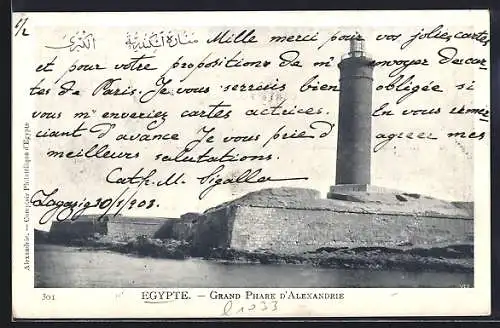 1/2
منارة اسكندرية الكبرى
Mille merci pour vos jolies cartes
et pour votre propositions de m'envoyer des car-
tes de Paris. Je vous serrais bien obligée si
vous m'enveriez cartes actrices. En vous remer-
ciant d'avance Je vous pried'agreer mes
meilleurs salutations.
Cath. M. Sigalla
Zagazig 30/1/903
Alexandrie. - Comptoir Philatélique d'Egypte
301
EGYPTE. – GRAND PHARE D'ALEXANDRIE